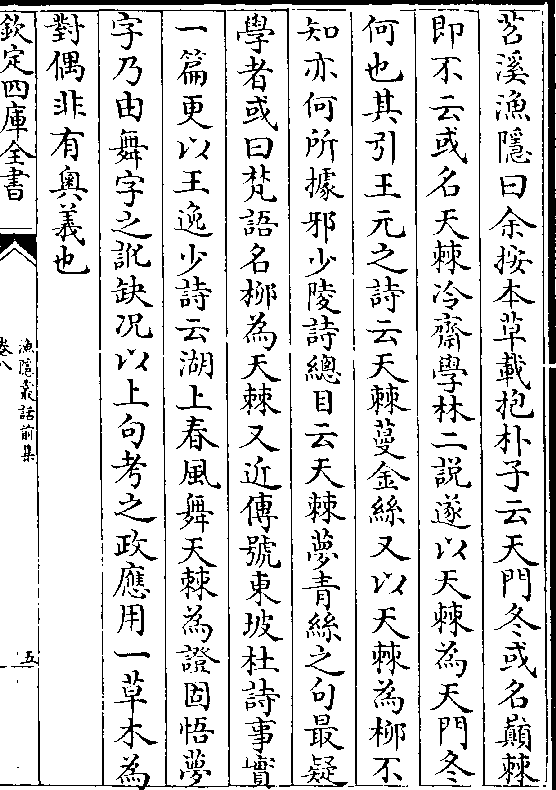 苕溪漁隱曰余按本草載抱朴子云天門冬或名巔棘
即不云或名天棘冷齋學林二説遂以天棘為天門冬
何也其引王元之詩云天棘蔓金絲又以天棘為柳不
知亦何所據邪少陵詩總目云天棘夢青絲之句最疑
學者或曰梵語名柳為天棘又近傳號東坡杜詩事實
一篇更以王逸少詩云湖上春風舞天棘為證固悟夢
字乃由舞字之訛缺况以上句考之政應用一草木為
對偶非有奥義也
欽定四庫全書
漁隱叢話前集
卷八
五